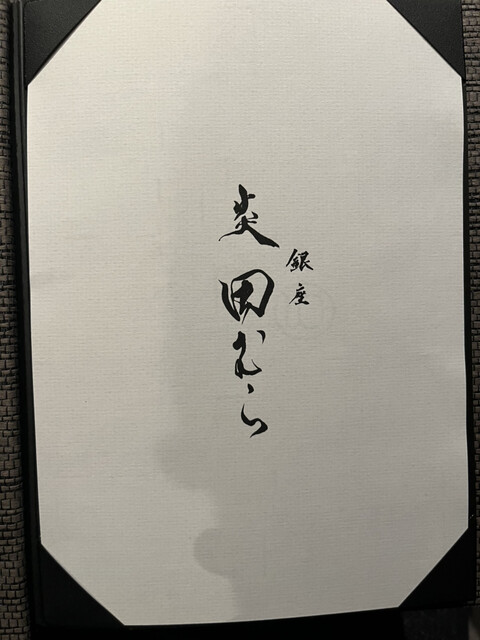 銀座
炎田むら